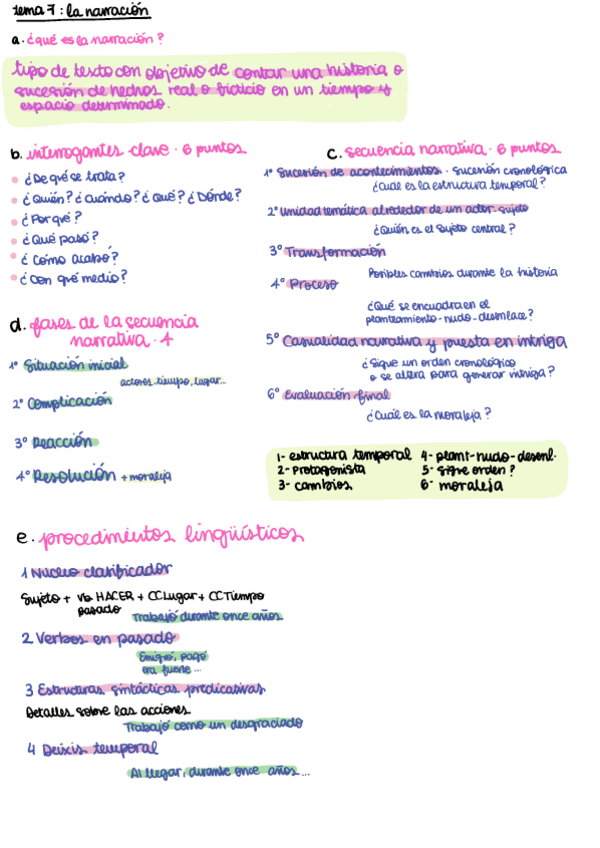 tema 7: la narración
a. ¿qué es la narración?
tipo de texto con objetivo de contar una historia o
sucesión de hechos real o ficticio en un tiempo y
espacio determinado.
b. interrogantes clave · 6 puntos
¿De qué se trata?
¿Quién? ¿Cuándo? ¿Qué? ¿Dónde?
¿Por qué?
¿Qué pasó?
¿Cómo acabó?
¿Con qué medio?
c. secuencia narrativa · 6 puntos
1º Sucesión de acontecimientos · sucesión cronológica
¿Cuál es la estructura temporal?
2º Unidad temática alrededor de un actor-sujeto
¿Quién es el sujeto central?
3º Transformación
Posibles cambios durante la historia
4º Proceso
¿Qué se encuadra en el
planteamiento-nudo-desenlace?
5º Casualidad narrativa y puesta en intriga
¿Sigue un orden cronológico
o se altera para generar intriga?
6º Evaluación final
¿Cuál es la moraleja?
1- estructura temporal 4- plant-nudo-desenl.
2- protagonista 5- sigue orden?
3- cambios 6- moraleja
d. fases de la secuencia
narrativa · 4
1º Situación inicial
actores, tiempo, lugar...
2º Complicación
3º Reacción
4º Resolución + moraleja
e. procedimientos lingüísticos
1 Núcleo clasificador
Sujeto + vb HACER + CCLugar + CCTiempo
pasado
Trabajó durante once años
2 Verbos en pasado
Emigró, pagó
era fuerte ...
3 Estructuras sintácticas predicativas
Detalles sobre las acciones
Trabajó como un desgraciado
4 Deixis temporal
Al llegar, durante once años ...